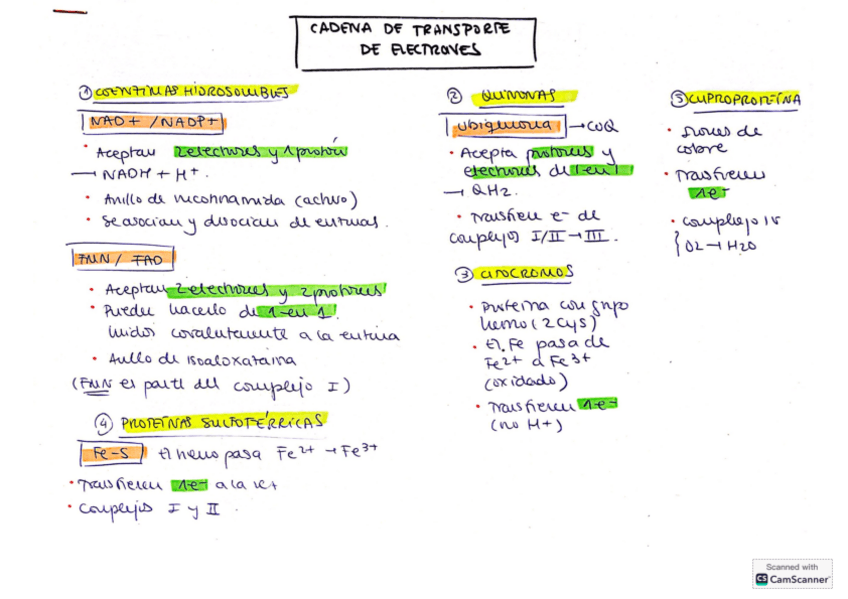 CADENA DE TRANSPORTE
DE ELECTRONES
① COENZIMAS HIDROSOLUBLES
NAD+ / NADP+
• Aceptan 2 electrones y 1 protón
→ NADH + H+.
• Anillo de nicotinamida (activo)
• Se asocian y disocian de enzimas.
FMN / FAD
• Aceptan 2 electrones y 2 protones
• Pueden hacerlo de 1 en 1.
Unidos covalentemente a la enzima
• Anillo de isoaloxazina
(FMN es parte del complejo I)
④ PROTEÍNAS SULFOFÉRRICAS
Fe-S El hierro pasa Fe2+ → Fe3+
• Transfieren 1e- a la
• Complejos I y II.
② QUINONAS
Ubiquinona → CoQ
• Acepta protones y
electrones de 1 en 1
→ QH2.
• Transfiere e- de
complejos I/II → III.
③ CITOCROMOS
• Proteína con grupo
hemo (2 Cys)
• El Fe pasa de
Fe2+ a Fe3+
(oxidado)
• Transfieren 1e-
(no H+)
⑤ CUPROPROTEÍNA
• Iones de
cobre
• Transfieren
1e-
• Complejo IV
O2 → H2O
Scanned with
CS CamScanner